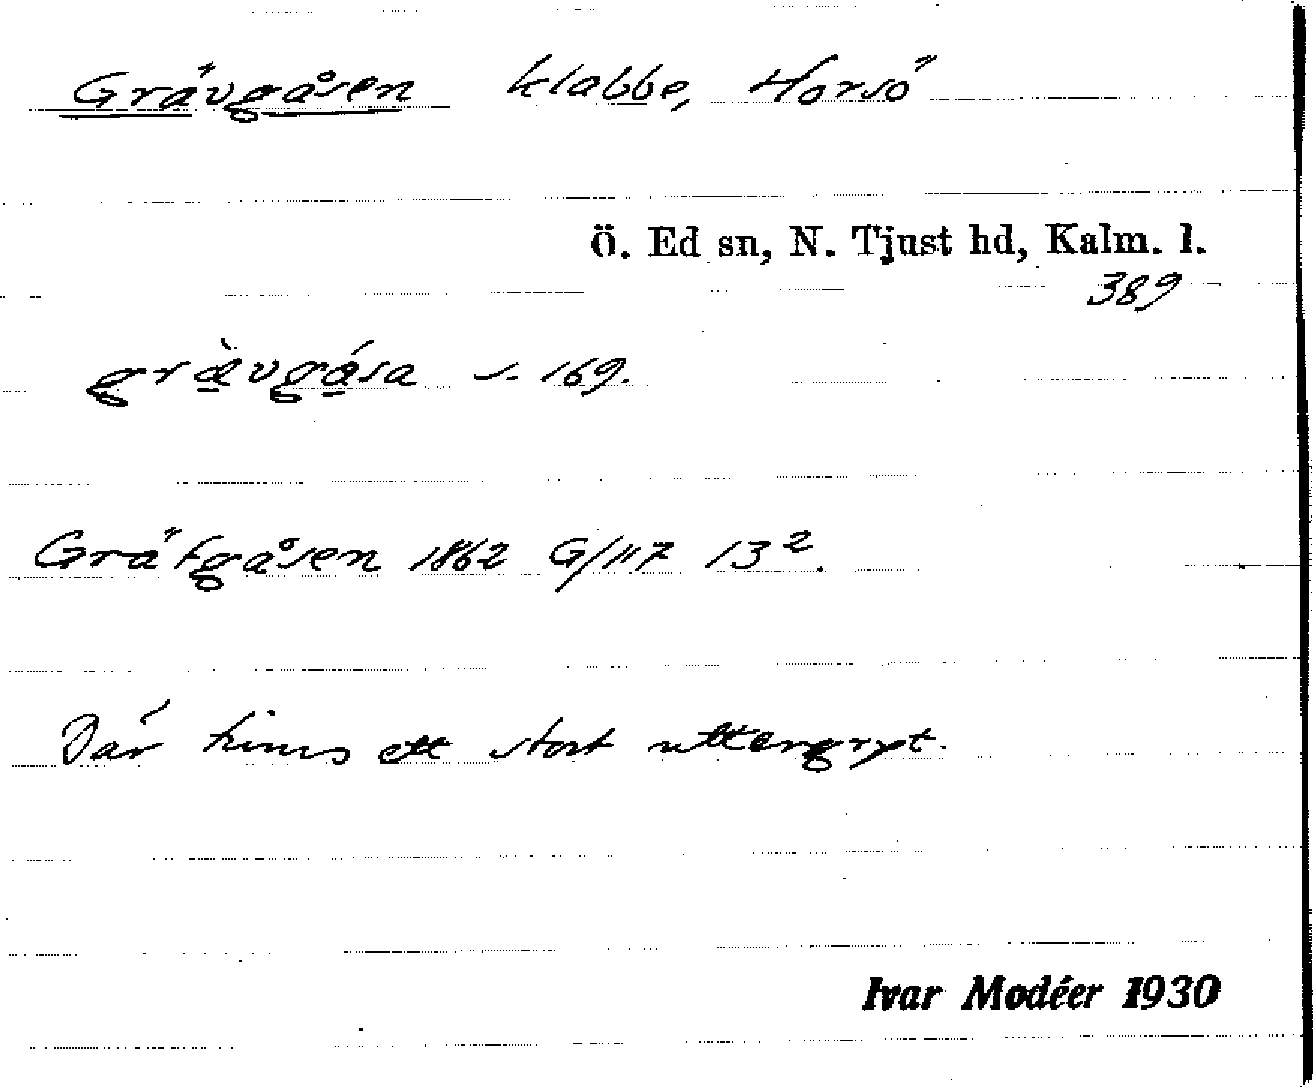 Grävgåsen klabbe, Horsö
Ö. Ed sn, N. Tjust hd, Kalm. l.
389
grä̀vgǻsa s. 169.
Gräfgåsen 1862 G/117 13².
Där finns ett stort uttergryt.
Ivar Modéer 1930